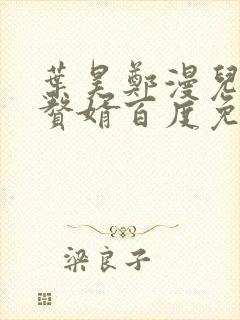 葉昊鄭漫兒
贅婿百度免
梁良子